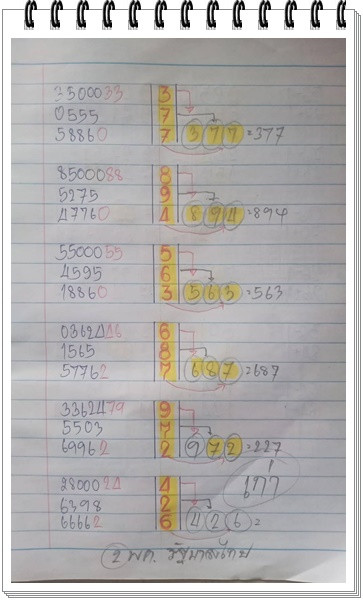 3500033 3
0555 7
58860 7 377 =377
8500088 8
5275 9
47760 4 894 =894
5500055 5
4595 6
18860 3 563 =563
0362446 6
1565 8
57762 7 687 =687
3362479 9
5503 7
69962 2 972 =227
2800024 4
6398 2
66662 6 426 =
2 พค. รัฐบาลไทย